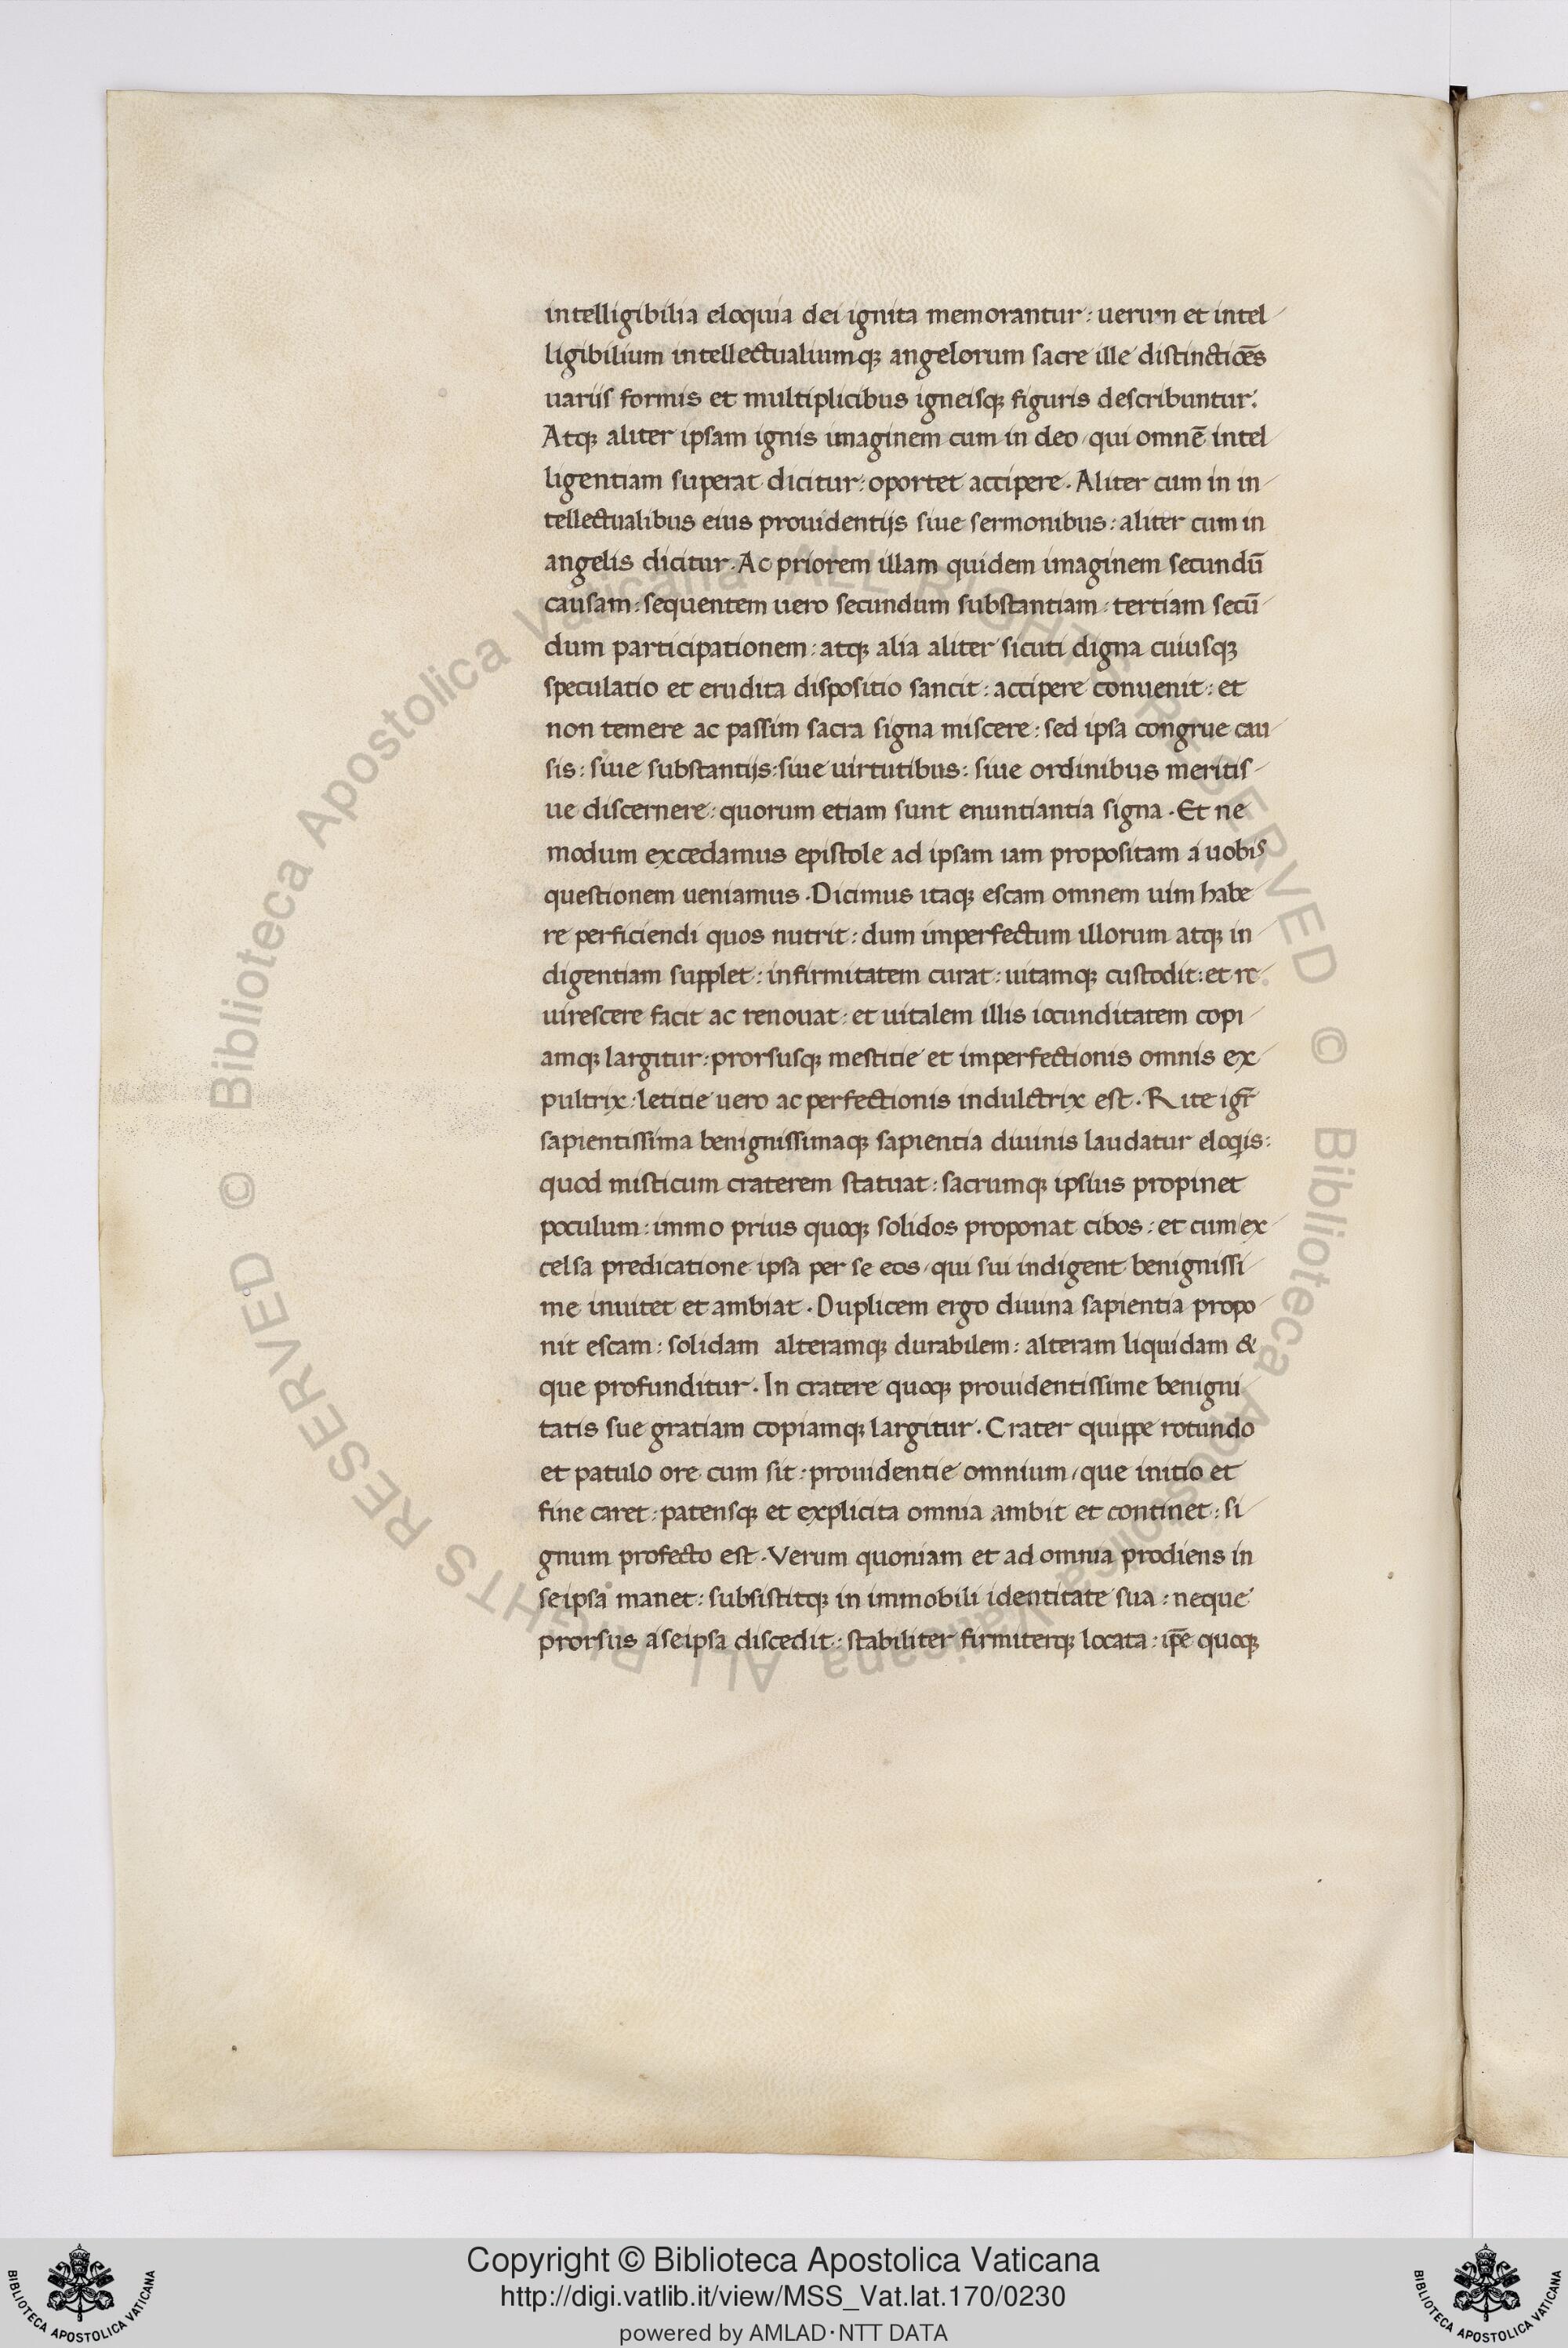 intelligibilia eloquia dei ignita memorantur: uerum et intel
ligibilium intellectualiumqꝫ angelorum sacre ille distinctiōes
uariis formis et multiplicibus igneisqꝫ figuris describuntur.
Atqꝫ aliter ipsam ignis imaginem cum in deo qui omnē intel
ligentiam superat dicitur: oportet accipere. Aliter cum in in
tellectualibus eius prouidentijs siue sermonibus: aliter cum in
angelis dicitur. Ac priorem illam quidem imaginem secundū
causam: sequentem uero secundum substantiam: tertiam secū
dum participationem: atqꝫ alia aliter sicuti digna cuiusqꝫ
speculatio et erudita dispositio sancit: accipere conuenit: et
non temere ac passim sacra signa miscere: sed ipsa congrue cau
sis: siue substantijs: siue uirtutibus: siue ordinibus meritis
ue discernere: quorum etiam sunt enuntiantia signa. Et ne
modum excedamus epistole ad ipsam iam propositam a uobis
questionem ueniamus. Dicimus itaqꝫ escam omnem uim habe
re perficiendi quos nutrit: dum imperfectum illorum atqꝫ in
digentiam supplet: infirmitatem curat: uitamqꝫ custodit: et re
uirescere facit ac renouat: et uitalem illis iocunditatem copi
amqꝫ largitur: prorsusqꝫ mestitie et imperfectionis omnis ex
pultrix: letitie uero ac perfectionis indulctrix est. Rite igr̄
sapientissima benignissimaqꝫ sapientia diuinis laudatur eloqis:
quod misticum craterem statuat: sacrumqꝫ ipsius propinet
poculum: immo prius quoqꝫ solidos proponat cibos: et cum ex
celsa predicatione ipsa per se eos qui sui indigent benignissi
me inuitet et ambiat. Duplicem ergo diuina sapientia propo
nit escam: solidam alteramqꝫ durabilem: alteram liquidam &
que profunditur. In cratere quoqꝫ prouidentissime benigni
tatis sue gratiam copiamqꝫ largitur. Crater quippe rotundo
et patulo ore cum sit: prouidentie omnium, que initio et
fine caret: patensqꝫ et explicita omnia ambit et continet: si
gnum profecto est. Verum quoniam et ad omnia prodiens in
seipsa manet: subsistitqꝫ in immobili identitate sua: neque
prorsus a seipsa discedit: stabiliter firmiterqꝫ locata: ip̄e quoqꝫ
© Biblioteca Apostolica Vaticana ALL RIGHTS RESERVED
© Biblioteca Apostolica Vaticana ALL RIGHTS RESERVED
Copyright © Biblioteca Apostolica Vaticana
http://digi.vatlib.it/view/MSS_Vat.lat.170/0230
powered by AMLAD·NTT DATA
BIBLIOTECA APOSTOLICA VATICANA
BIBLIOTECA APOSTOLICA VATICANA